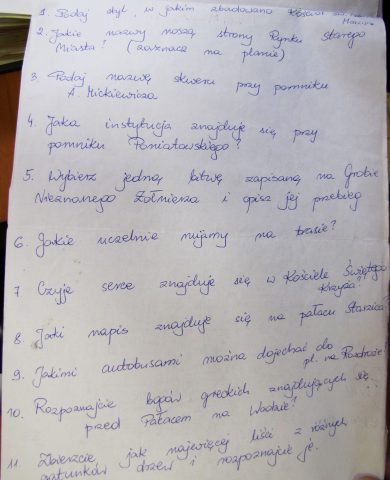 1. Podaj styl, w jakim zbudowano Kościół św.
2. Jakie nazwy noszą strony Rynku Starego
Miasta? (zaznacz na planie)
3. Podaj nazwę skweru przy pomniku
A. Mickiewicza
4. Jaka instytucja znajduje się przy
pomniku Poniatowskiego?
5. Wybierz jedną bitwę zapisaną na Grobie
Nieznanego Żołnierza i opisz jej przebieg
6. Jakie uczelnie mijamy na trasie?
7 Czyje serce znajduje się w Kościele Świętego
Krzyża?
8. Jaki napis znajduje się na pałacu Staszica
9. Jakimi autobusami można dojechać do
pl. na Rozdrożu?
10. Rozpoznajcie bogów greckich znajdujących się
przed Pałacem na Wodzie?
11. Zbierzcie jak najwięcej liści z różnych
gatunków drzew i rozpoznajcie je.